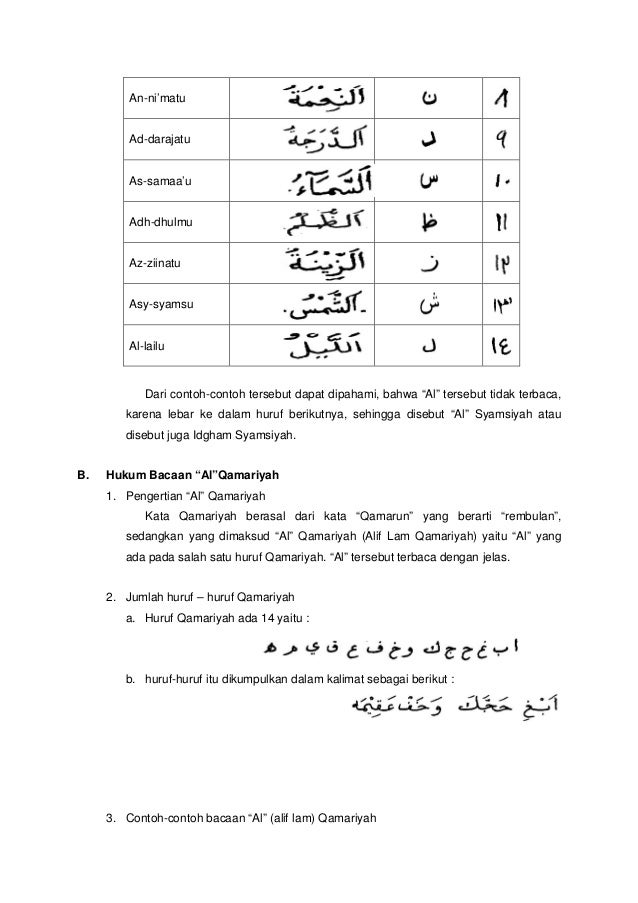 An-ni’matu اَلنِّعْمَةُ ن ٨
Ad-darajatu اَلدَّرَجَةُ د ٩
As-samaa’u اَلسَّمَآءُ س ١٠
Adh-dhulmu اَلظُّلْمُ ظ ١١
Az-ziinatu اَلزِّيْنَةُ ز ١٢
Asy-syamsu اَلشَّمْسُ ش ١٣
Al-lailu اَللَّيْلُ ل ١٤
Dari contoh-contoh tersebut dapat dipahami, bahwa “Al” tersebut tidak terbaca,
karena lebar ke dalam huruf berikutnya, sehingga disebut “Al” Syamsiyah atau
disebut juga Idgham Syamsiyah.
B. Hukum Bacaan “Al”Qamariyah
1. Pengertian “Al” Qamariyah
Kata Qamariyah berasal dari kata “Qamarun” yang berarti “rembulan”,
sedangkan yang dimaksud “Al” Qamariyah (Alif Lam Qamariyah) yaitu “Al” yang
ada pada salah satu huruf Qamariyah. “Al” tersebut terbaca dengan jelas.
2. Jumlah huruf – huruf Qamariyah
a. Huruf Qamariyah ada 14 yaitu :
ا ب غ ح ج ك و خ ف ع ق ي م ه
b. huruf-huruf itu dikumpulkan dalam kalimat sebagai berikut :
اَبْغِ حَجَّكَ وَخَفْ عَقِيْمَهُ
3. Contoh-contoh bacaan “Al” (alif lam) Qamariyah